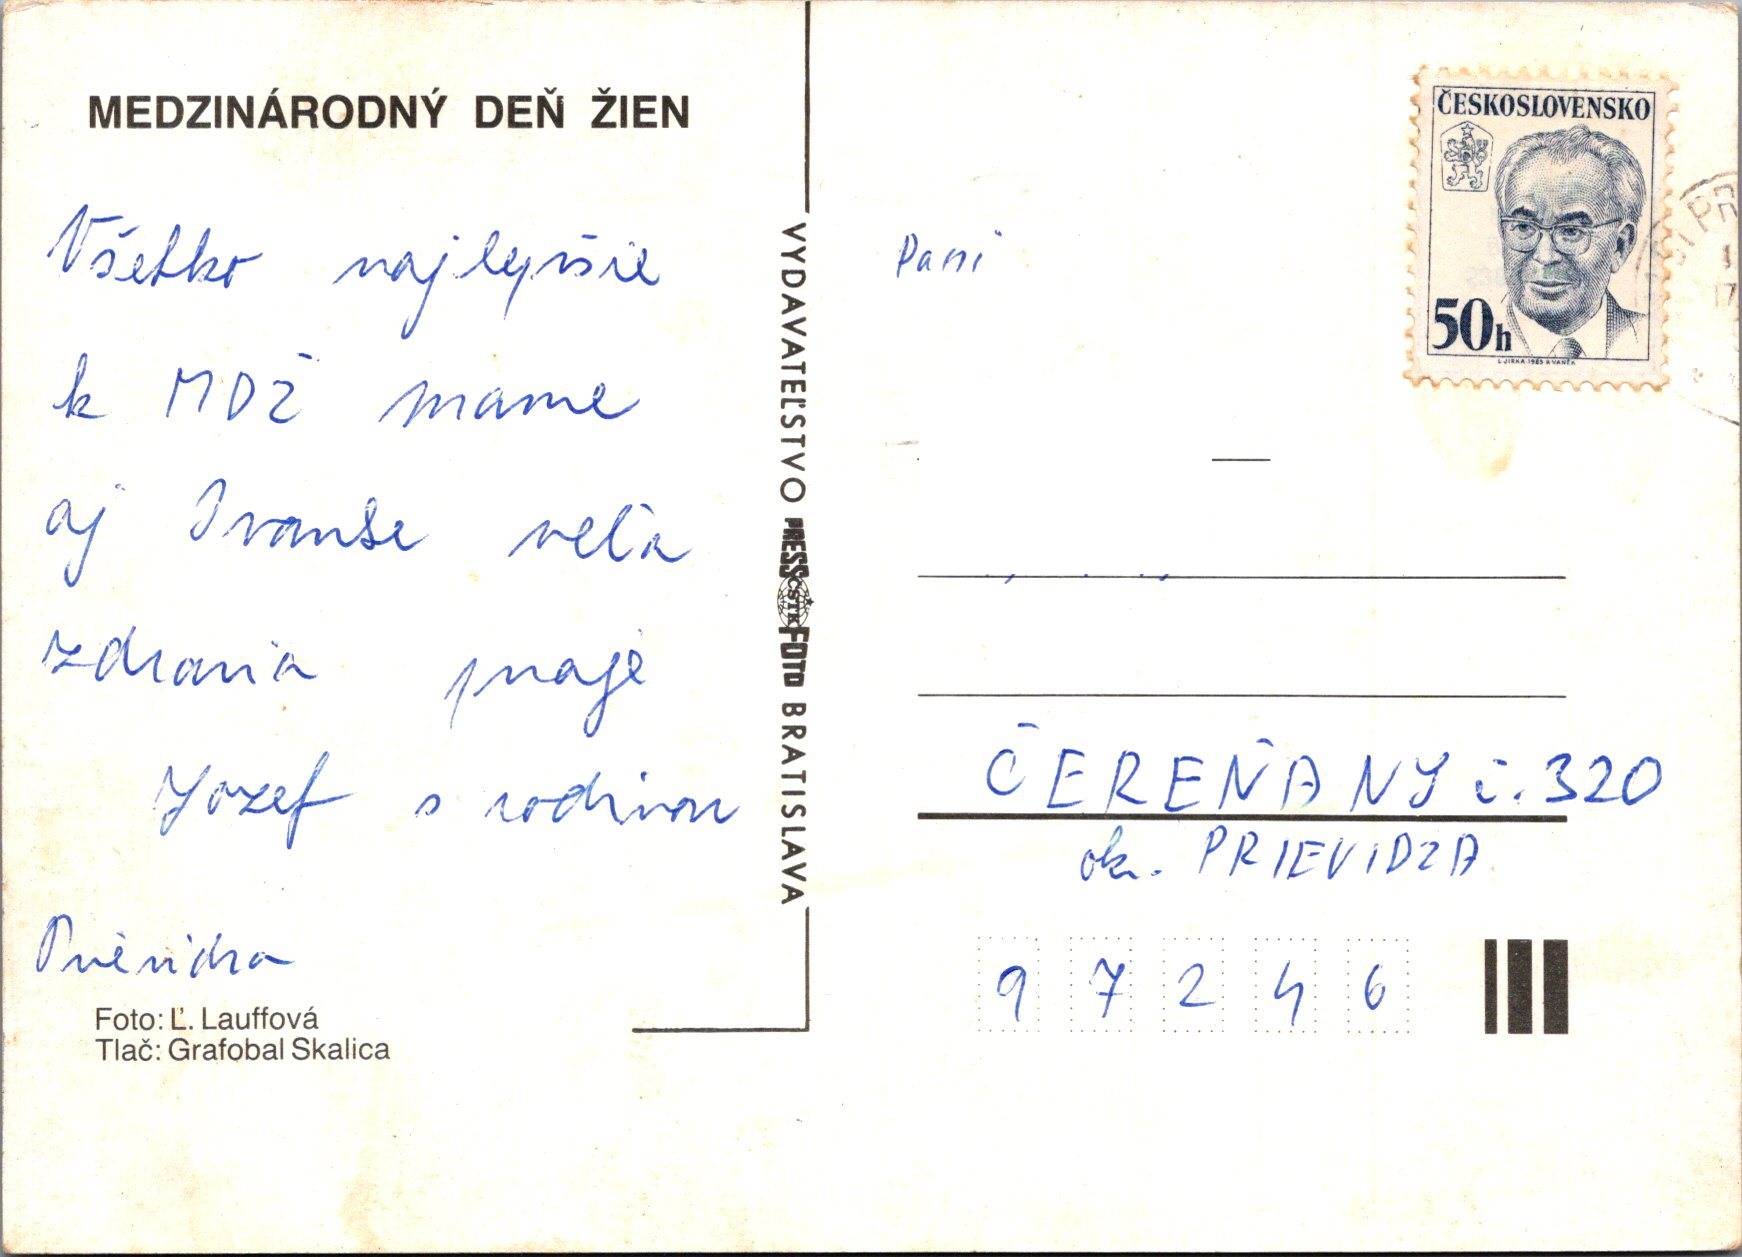 MEDZINÁRODNÝ DEŇ ŽIEN
Všetko najlepšie
k MDŽ mame
aj Ivanke veľa
zdravia praje
Jozef s rodinou
Prievidza
Foto: Ľ. Lauffová
Tlač: Grafobal Skalica
VYDAVATEĽSTVO PRESSFOTO BRATISLAVA
ČSTK
ČESKOSLOVENSKO
50h
L. JIRKA 1985 A VANĚK
PR
17
Pani
ČEREŇANY č. 320
ok. PRIEVIDZA
97246